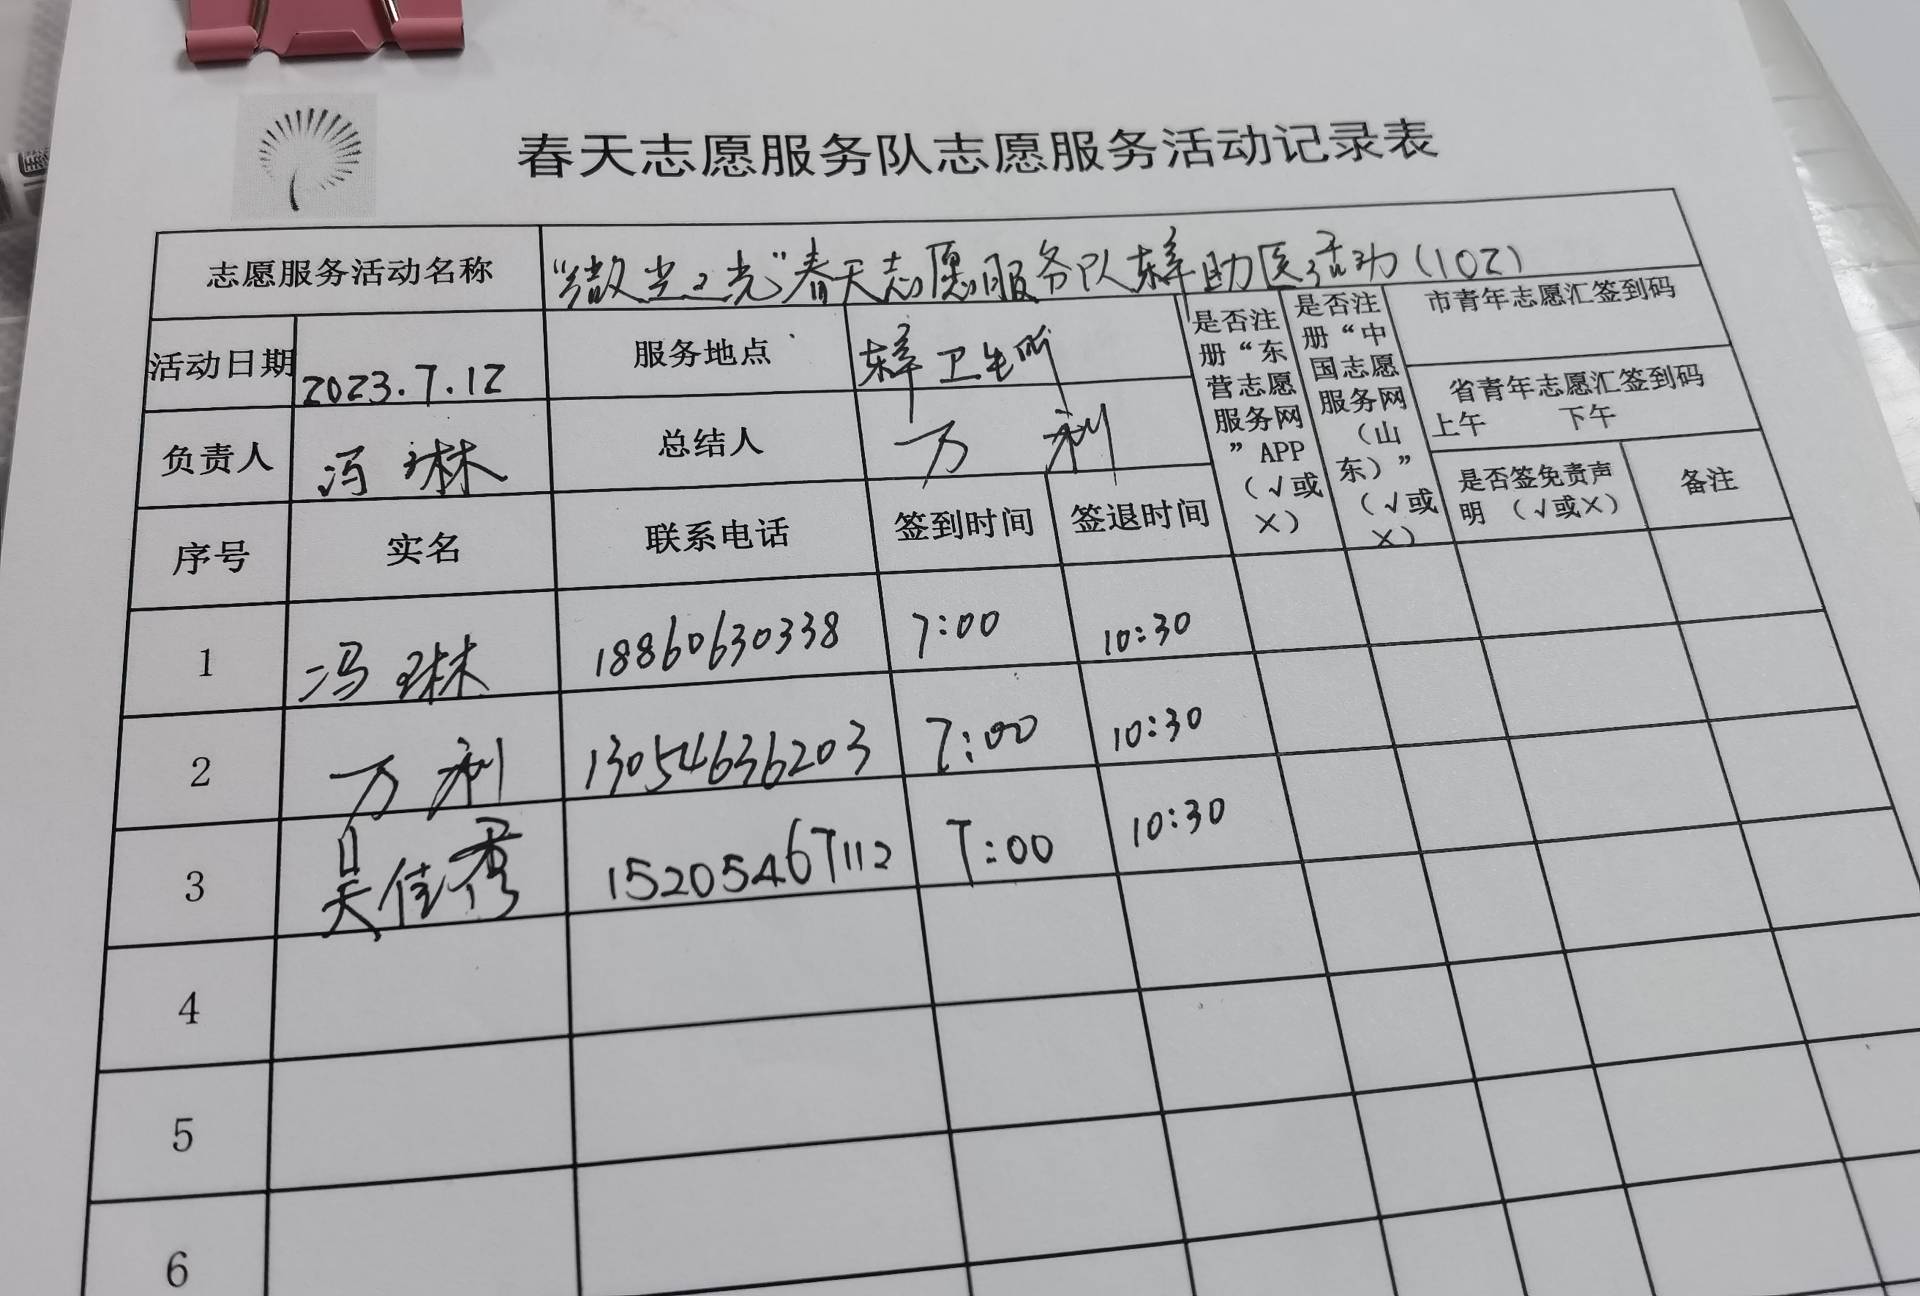 春天志愿服务队志愿服务活动记录表
志愿服务活动名称 “微光之光”春天志愿服务队 助医活动(102)
活动日期 2023.7.12 服务地点 卫生所
是否注册“东营志愿服务网”APP（√或×）
是否注册“中国志愿服务网（山东）”（√或×）
市青年志愿汇签到码
省青年志愿汇签到码
上午 下午
负责人 冯琳 总结人 万利
是否签免责声明（√或×） 备注
序号 实名 联系电话 签到时间 签退时间
1 冯琳 18860630338 7:00 10:30
2 万利 13054636203 7:00 10:30
3 吴佳秀 15205467112 7:00 10:30
4
5
6